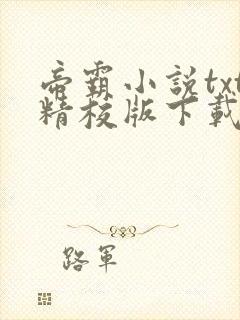 帝霸小説txt
精校版下載
路軍